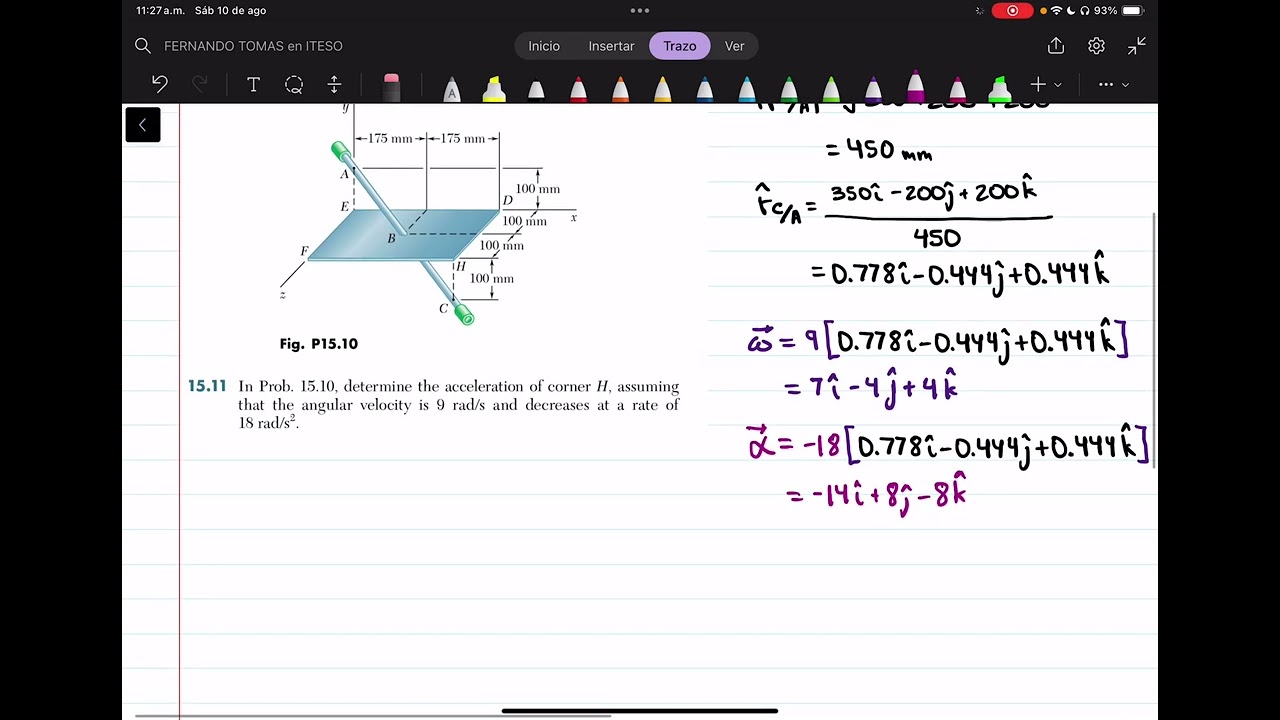 11:27 a.m. Sáb 10 de ago
93%
FERNANDO TOMAS en ITESO
Inicio Insertar Trazo Ver
T
A
y
175 mm 175 mm
A
100 mm
E
D
x
100 mm
B
100 mm
F
H
100 mm
z
C
Fig. P15.10
15.11 In Prob. 15.10, determine the acceleration of corner H, assuming
that the angular velocity is 9 rad/s and decreases at a rate of
18 rad/s².
= 450 mm
r̂C/A = 350î - 200ĵ + 200k̂
450
= 0.778î - 0.444ĵ + 0.444k̂
ω⃗ = 9[0.778î - 0.444ĵ + 0.444k̂]
= 7î - 4ĵ + 4k̂
α⃗ = -18[0.778î - 0.444ĵ + 0.444k̂]
= -14î + 8ĵ - 8k̂